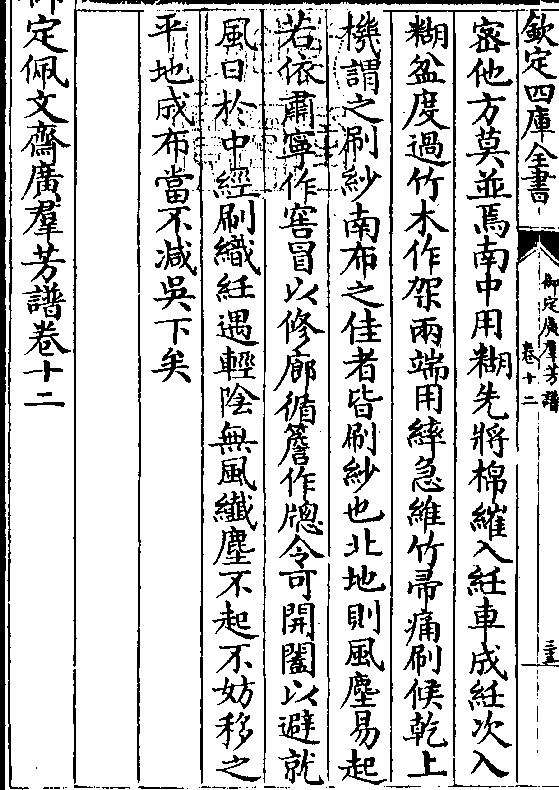 欽定四庫全書
御定廣羣芳譜
卷十二
三五
密他方莫並焉南中用糊先將棉䌟入紝車成紝次入
糊盆度過竹木作架兩端用繂急維竹帚痛刷候乾上
機謂之刷紗南布之佳者皆刷紗也北地則風塵易起
若依肅寧作窖冒以修廊循簷作牕令可開闔以避就
風日於中經刷織紝遇輕陰無風纎塵不起不妨移之
平地成布當不減吳下矣
御定佩文齋廣羣芳譜卷十二